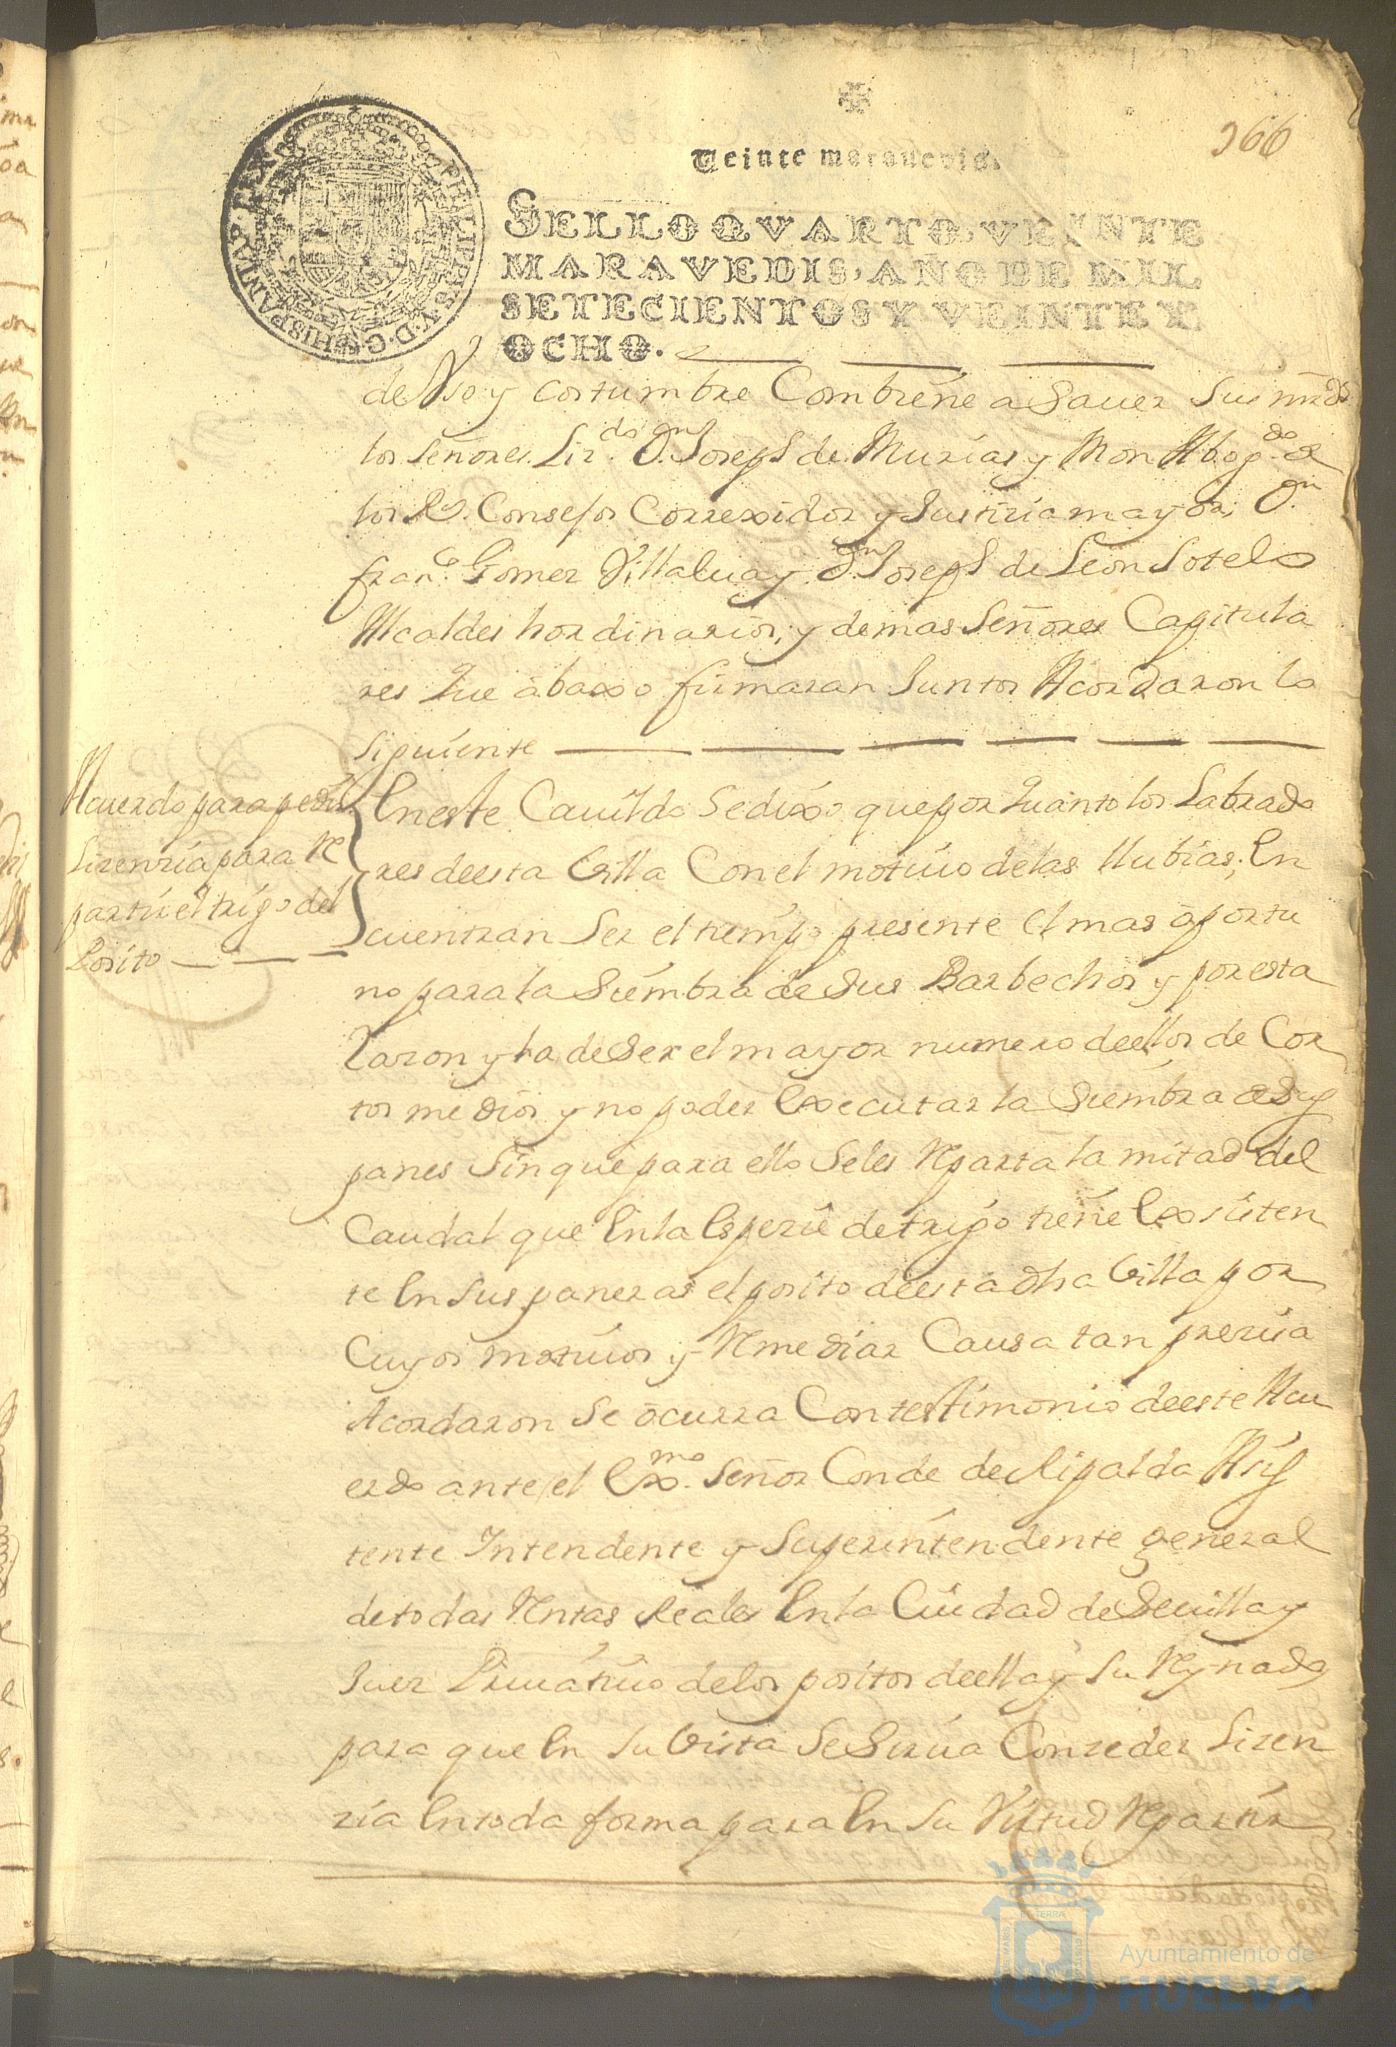 366
Veinte maravedis.
SELLO QVARTO, VEINTE
MARAVEDIS, AÑO DE MIL
SETECIENTOS Y VEINTE Y
OCHO.
PHILIPPUS V. D. G. HISPANIAR. REX
de Vso y costumbre Combiene a Sauer Sus mrds
los señores Lizdo. Dn. Joseph de Murias y Mon Abogdo. de
los Rs. Consejos Correxidor y Justizia mayor, Dn.
Franco. Gomez Villalua y Dn. Joseph de Leon Sotelo
Alcaldes hordinarios, y demas Señores Capitula
res Que abaxo firmaran Juntos Acordaron lo
siguiente
Acuerdo para pedir
Lizenzia para Re
partir el trigo del
Posito
En este Cauildo Se dixo que por Quanto los Labrado
res de esta Villa Con el motiuo de las llubias, En
cuentran Ser el tiempo presente el mas oportu
no para la Siembra de Sus Barbechos y por esta
Razon y ha de Ser el mayor numero de ellos de Cor
tos medios y no poder Executar la Siembra de Sus
panes Sin que para ello Seles Reparta la mitad del
Caudal que En la Espezie de trigo tiene Existen
te En Sus paneras el posito de esta dha Villa por
Cuyos motiuos y Remediar Causa tan prezisa
Acordaron Se ocurra Con testimonio de este Acu
erdo ante el Exmo. Señor Conde de Ripalda Asis
tente Intendente y Superintendente general
de todas Rentas Reales En la Ciudad de Seuilla y
Juez Priuatiuo de los positos de ella y Su Reynado
para que En Su Vista Se Sirua Conzeder Lizen
zia En toda forma para En Su Virtud Repartir
Ayuntamiento de
HUELVA